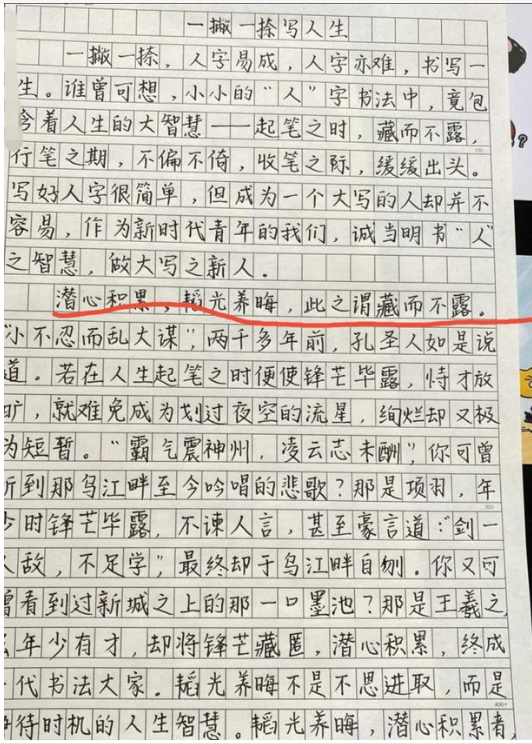 一撇一捺写人生
一撇一捺，人字易成，人字亦难，书写一
生。谁曾可想，小小的“人”字书法中，竟包
含着人生的大智慧——起笔之时，藏而不露，
行笔之期，不偏不倚，收笔之际，缓缓出头。
写好人字很简单，但成为一个大写的人却并不
容易，作为新时代青年的我们，诚当明书“人”
之智慧，做大写之新人．
潜心积累，韬光养晦，此之谓藏而不露。
“小不忍而乱大谋”，两千多年前，孔圣人如是说
道。若在人生起笔之时便使锋芒毕露，恃才放
旷，就难免成为划过夜空的流星，绚烂却又极
为短暂。“霸气震神州，凌云志未酬”，你可曾
听到那乌江畔至今吟唱的悲歌？那是项羽，年
少时锋芒毕露，不谏人言，甚至豪言道：“剑一
人敌，不足学”，最终却于乌江畔自刎。你又可
曾看到过新城之上的那一口墨池？那是王羲之，
年少有才，却将锋芒藏匿，潜心积累，终成
一代书法大家。韬光养晦不是不思进取，而是
待时机的人生智慧。韬光养晦，潜心积累者，